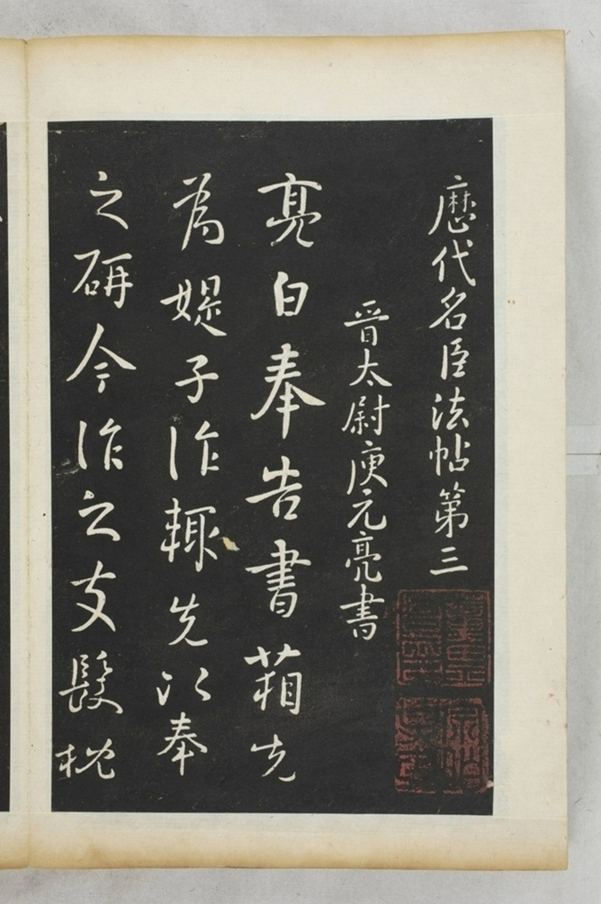 歷代名臣法帖第三
晉太尉庾元亮書
亮白奉告書箱先
為媞子作輒先以奉
之研今作之支髮枕